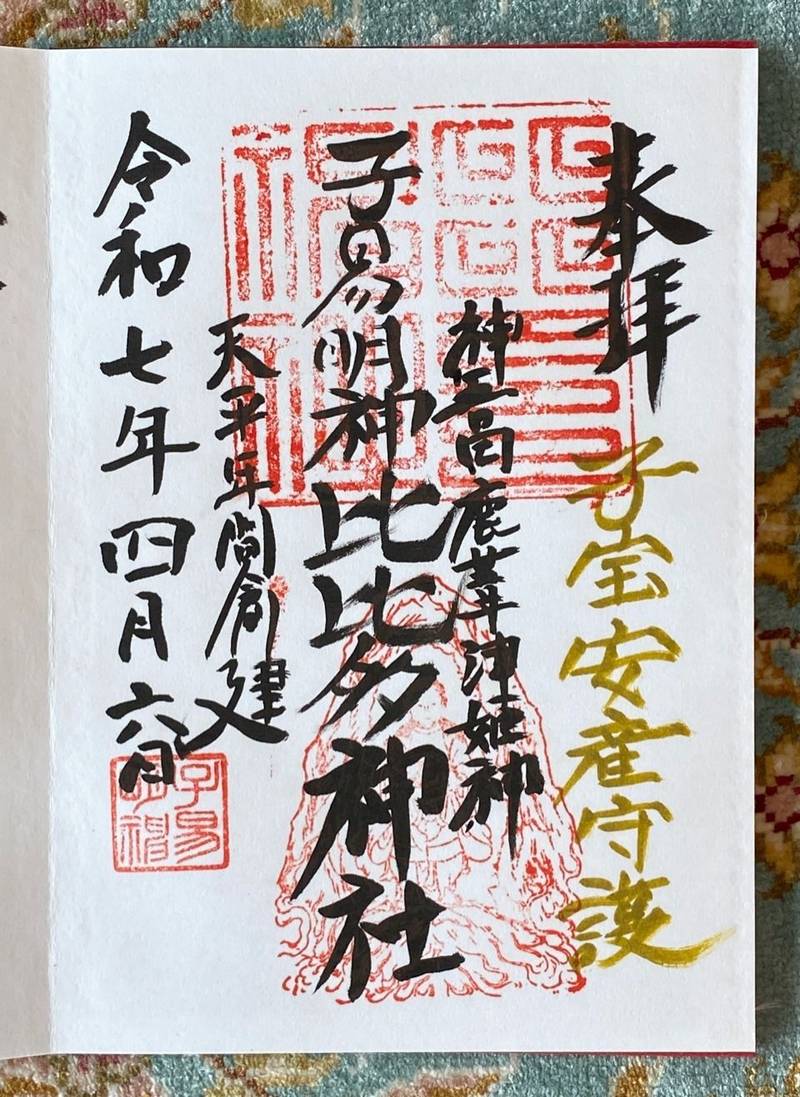 奉拝
子宝安産守護
子易明神比比多神社
天平年間創建
令和七年四月六日
子易明神